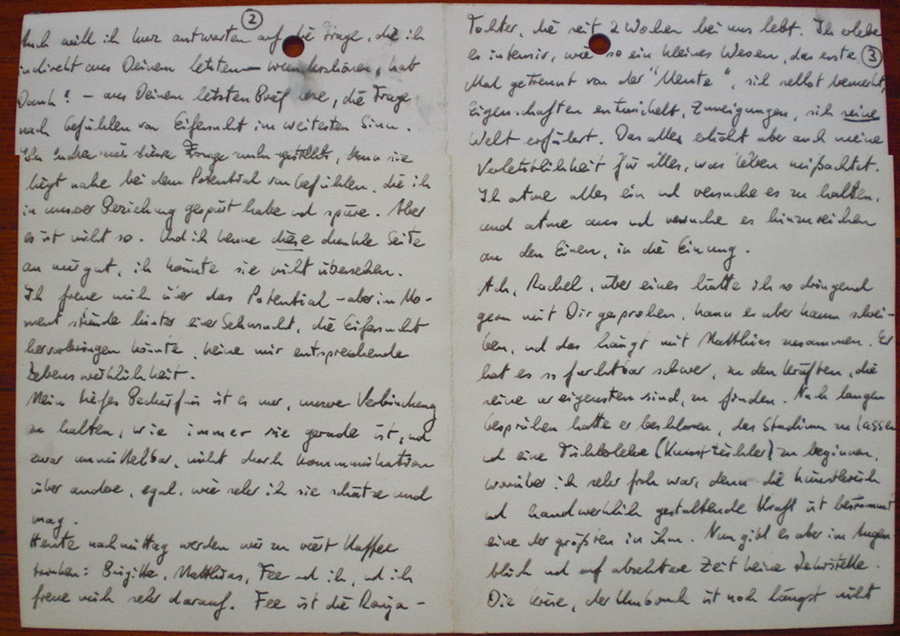 2
Auch will ich kurz antworten auf die Frage, die ich
indirekt aus Deinem letzten – wunderschönen, hab
Dank! – aus Deinem letzten Brief lese, die Frage
nach Gefühlen von Eifersucht im weitesten Sinn.
Ich habe mir diese Frage auch gestellt, denn sie
liegt nahe bei dem Potential von Gefühlen, die ich
in unserer Beziehung gespürt habe und spüre. Aber
es ist nicht so. Und ich kenne diese dunkle Seite
an mir gut, ich könnte sie nicht übersehen.
Ich freue mich über das Potential – aber im Mo-
ment stünde hinter einer Sehnsucht, die Eifersucht
hervorbringen könnte, keine mir entsprechende
Lebenswirklichkeit.
Mein tiefes Bedürfnis ist es nur, unsere Verbindung
zu halten, wie immer sie gerade ist, und
zwar unmittelbar, nicht durch Kommunikation
über andere, egal, wie sehr ich sie schätze und
mag.
Heute nachmittag werden wir zu viert Kaffee
trinken: Birgitte, Matthias, Fee und ich, und ich
freue mich sehr darauf. Fee ist die Ronja-
3
Tochter, die seit 2 Wochen bei uns lebt. Ich erlebe
es intensiv, wie so ein kleines Wesen, das erste
Mal getrennt von der "Meute", sich selbst bemerkt,
Eigenschaften entwickelt, Zuneigungen, sich seine
Welt erfühlt. Das alles erhöht aber auch meine
Verletzlichkeit für alles, was Leben mißachtet.
Ich atme alles ein und versuche es zu halten,
und atme aus und versuche es hinzureichen
an den Einen, in die Einung.
Ach, Rachel, über eines hätte ich so dringend
gern mit Dir gesprochen, kann es aber kaum schrei-
ben, und das hängt mit Matthias zusammen. Er
hat es so furchtbar schwer, zu den Kräften, die
seine ureigensten sind, zu finden. Nach langen
Gesprächen hatte er beschlossen, das Studium zu lassen
und eine Tischlerlehre (Kunsttischler) zu beginnen,
worüber ich sehr froh war, denn die künstlerisch
und handwerklich gestaltende Kraft ist bestimmt
eine der größten in ihm. Nun gibt es aber im Augen-
blick und auf absehbare Zeit keine Lehrstelle.
Die Krise, der Umbruch ist noch längst nicht